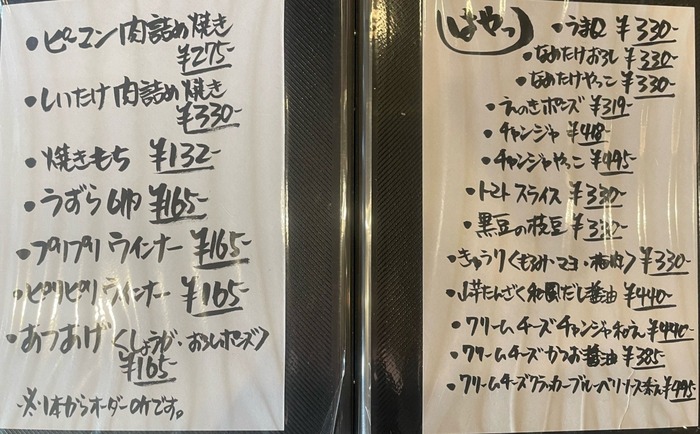 ・ピーマン肉詰め焼き
¥275-
・しいたけ肉詰め焼き
¥330-
・焼きもち ¥132-
・うずら6ヶ ¥165-
・プリプリウインナー ¥165-
・ピリピリウインナー ¥165-
・あつあげ〈しょうが・おろしポンズ〉
¥165-
※1本からオーダーOKです。
はやっ
・うまQ ¥330-
・なめたけおろし ¥330-
・なめたけやっこ ¥330-
・えのきポンズ ¥319-
・チャンジャ ¥418-
・チャンジャやっこ ¥495-
・トマトスライス ¥330-
・黒豆の枝豆 ¥330-
・きゅうり〈もろみ・マヨ・梅肉〉 ¥330-
・山芋たんざく和風だし醤油 ¥440-
・クリームチーズチャンジャ和え ¥440-
・クリームチーズかつお醤油 ¥385-
・クリームチーズクラッカーブルーベリーソース添え ¥495